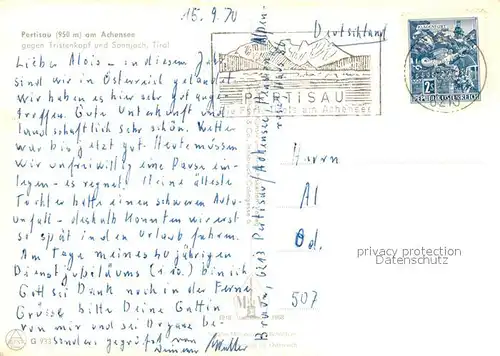 15.9.70
Pertisau (950 m) am Achensee
gegen Tristenkopf und Sonnjoch, Tirol
Deutschland
Lieber Alois - in diesem Jahr
sind wir in Österreich gelandet
Wir haben es hier sehr gut ange
troffen. Gute Unterkunft und
landschaftlich sehr schön. Wetter
war bis jetzt gut. Heute müssen
wir unfreiwillig eine Pause ein-
legen - es regnet. Meine älteste
Tochter hatte einen schweren Auto-
unfall - deshalb konnten wir erst
so spät in den Urlaub fahren.
Am Tage meines 40 jährigen
Dienstjubiläums (1.10.) bin ich
Gott sei Dank noch in der Ferne
Grüsse bitte Deine Gattin
von mir und sei Du ganz be-
sonders gegrüßt von
Deinem Walter
PERTISAU
am Achensee
KLAGENFURT
2S
REPUBLIK ÖSTERREICH
Herrn
Al
Od.
507
Pertisau/Achensee Pension Alpen-
privacy protection
Datenschutz
G 933